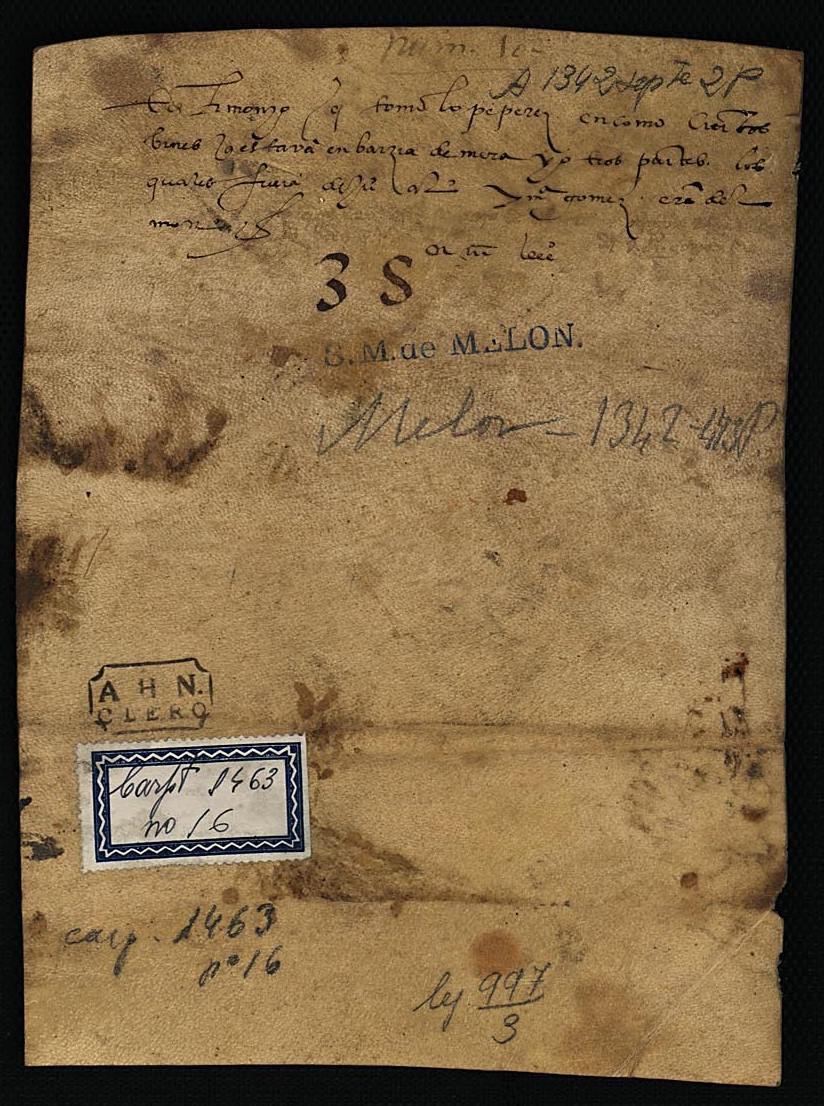 núm. 10
A 1342 septe 2 P
testimonyo q tomo lope perez en como ciertos
bienes q estavã en barzia de mera y o tros partes los
quales fuerã de gomez erã del
mon
3 S
S.M. de MELON.
Melon - 1342 P
A H N.
CLERO
Carpt 1463
no 16
carp. 1463
nº 16
leg 997
3